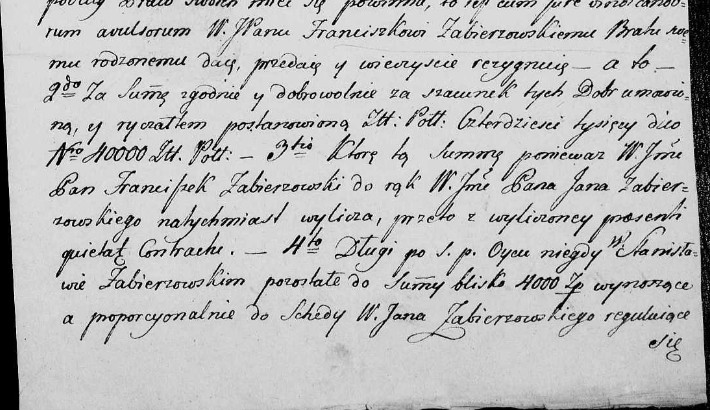 podług Praw swoich mieć się powinna, to jest cum jure vindicando-
rum avulsorum W. JPanu Franciszkowi Zabierzowskiemu Bratu swe-
mu rodzonemu daię, przedaię y wieczyście rezygnuię — a to —
2do Za Summę zgodnie y dobrowolnie za szacunek tych Dobr umowio-
ną, y ryczałtem postanowioną Złł: Poll: Czterdzieści tysięcy dico
Nro 40000 Złł. Poll: — 3tio Ktorę tą Summę ponieważ W. Jmć
Pan Franciszek Zabierzowski do rąk W. Jmć Pana Jana Zabier-
zowskiego natychmiast wylicza, przeto z wyliczoney præsenti
quietat Contractu. — 4to Długi po s. p. Oycu niegdy W. Stanisła-
wie Zabierzowskim pozostałe do Summy blisko 4000 Zp wynoszące
a proporcyonalnie do Schedy W. Jana Zabierzowskiego reguluiące
się